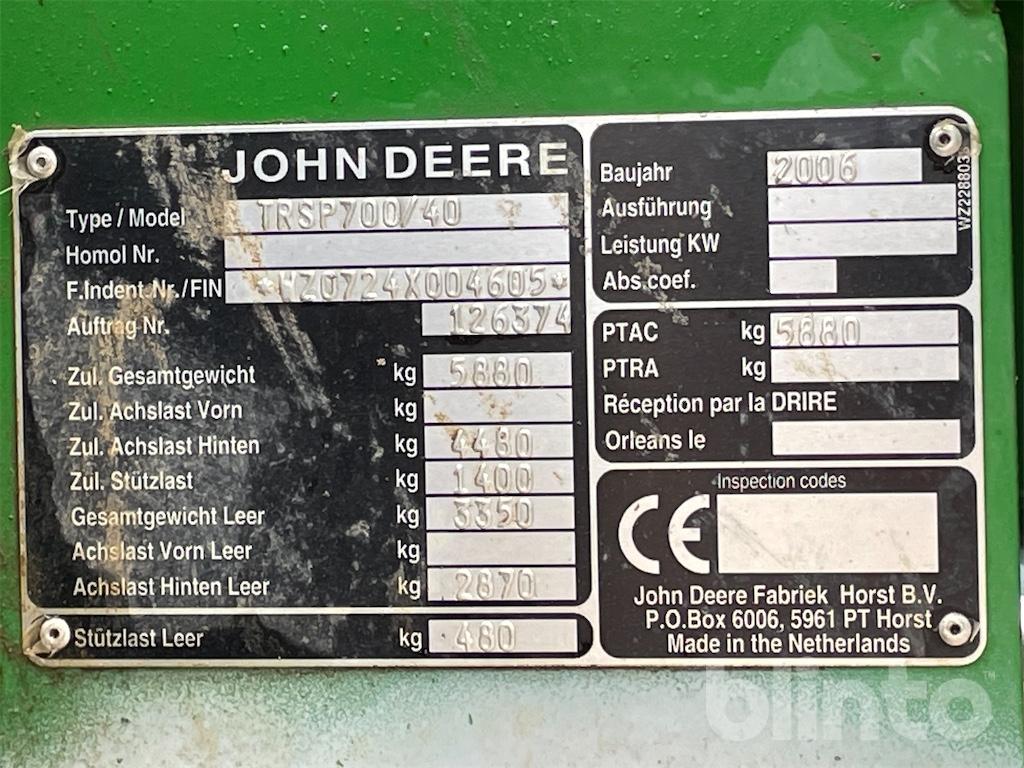 JOHN DEERE
Type / Model TRSP700/40
Homol Nr.
F.Indent.Nr./FIN *WZ0724X004605*
Auftrag Nr. 126374
Zul. Gesamtgewicht kg 5880
Zul. Achslast Vorn kg
Zul. Achslast Hinten kg 4480
Zul. Stützlast kg 1400
Gesamtgewicht Leer kg 3350
Achslast Vorn Leer kg
Achslast Hinten Leer kg 2870
Stützlast Leer kg 480
Baujahr 2006
Ausführung
Leistung KW
Abs.coef.
WZ228803
PTAC kg 5880
PTRA kg
Réception par la DRIRE
Orleans le
Inspection codes
CE
John Deere Fabriek Horst B.V.
P.O.Box 6006, 5961 PT Horst
Made in the Netherlands
blinto™